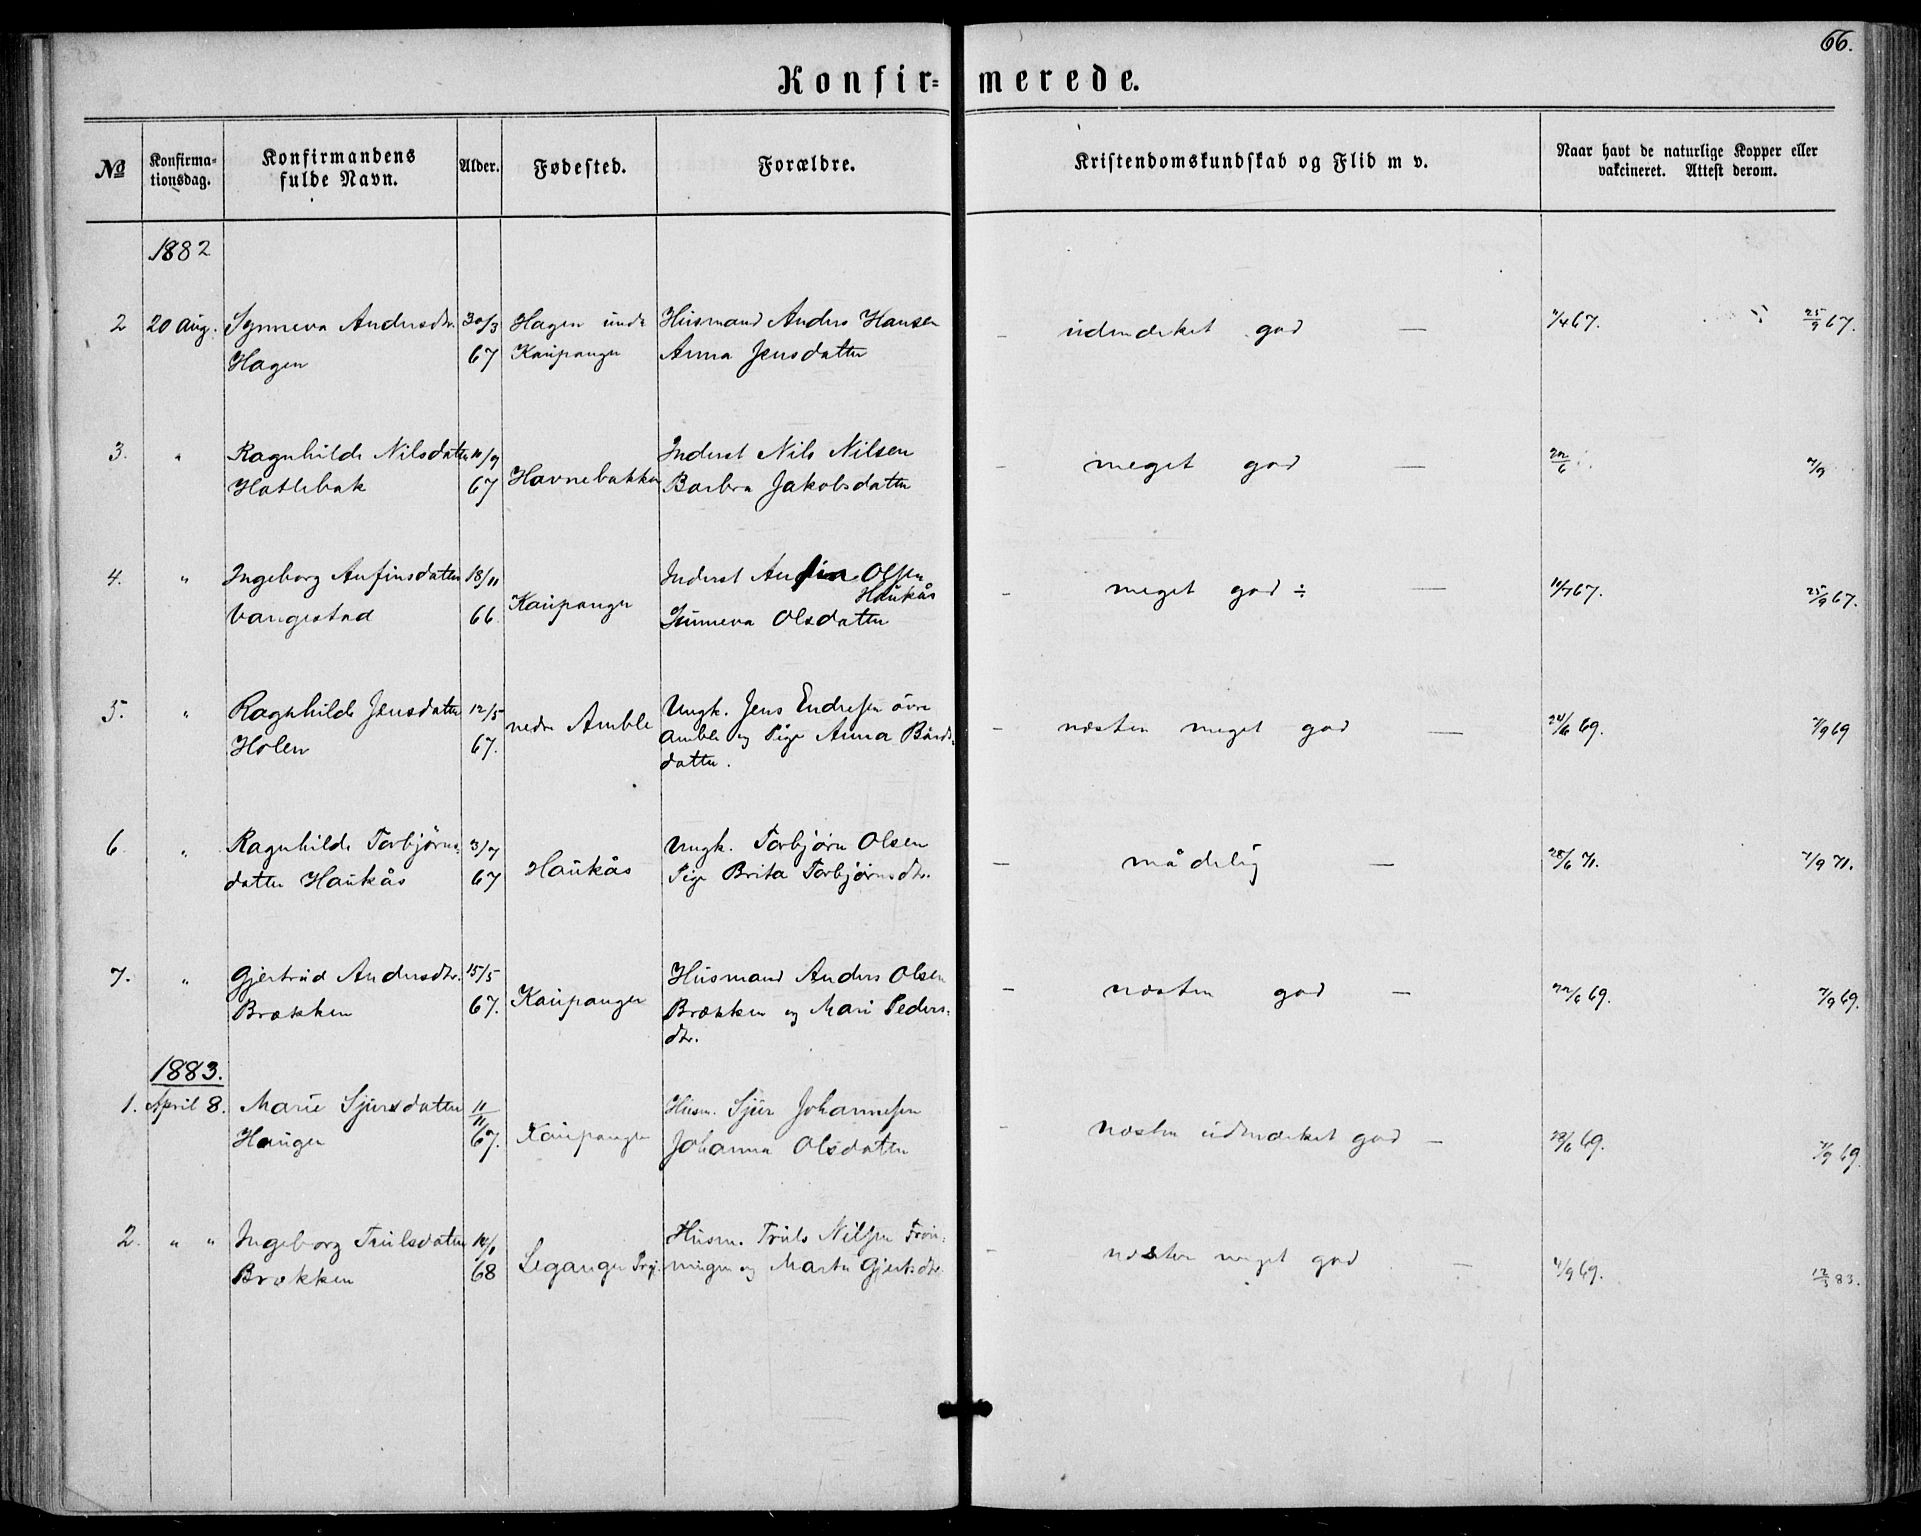 66.
Konfir= merede.
No
Konfirma=
tionsdag.
Konfirmandens
fulde Navn.
Alder.
Fødested.
Forældre.
Kristendomskundskab og Flid m v.
Naar havt de naturlige Kopper eller
vakcineret. Attest derom.
1882
2 20 Aug. Synneva Andersdtr. 30/3 Hagen unde Husmand Anders Hansen – udmærket god — 7/4 67. 25/9 67.
Hagen 67 Kaupanger Anna Jensdatter
3. " Ragnhilde Nilsdatter 11/9 Inderst Nils Nilsen – meget god — 22/6 7/9
Hatlebak 67 Havnebakken Barbra Jakobsdatter
4. " Ingeborg Anfinsdatter 18/11 Inderst Anfin Olsen – meget god ÷ — 11/7 67. 25/9 67.
Haukås
Vangestad 66 Kaupanger Sunneva Olsdatter
5. " Ragnhilde Jensdatter 12/5 nedre Amble Ungk. Jens Endresen övre – næsten meget god — 24/6 69. 7/9 69
Holen 67. Amble og Pige Anna Bårds=
datter.
6. " Ragnhilde Torbjörns= 3/7 Haukås Ungk. Torbjörn Olsen – mådelig — 28/6 71. 7/9 71.
datter Haukås 67 Pige Brita Torbjörnsdtr.
7. " Gjertrud Andersdtr. 15/5 Kaupanger Husmand Anders Olsen – næsten god — 22/6 69. 7/9 69.
Brækken 67. Brækken og Mari Peders=
dtr.
1883.
1. April 8. Marie Sjursdatter 11/11 Husm. Sjur Johannesen – næsten udmærket god – 23/6 69. 7/9 69.
Hauger 67. Kaupanger Johanna Olsdatter
2. " " Ingeborg Trulsdatter Husm. Truls Nilsen Frön= – næsten meget god – 7/9 69. 12/3 83.
Brækken 68 Leganger Prgj. ningen og Marta Gjertsdtr